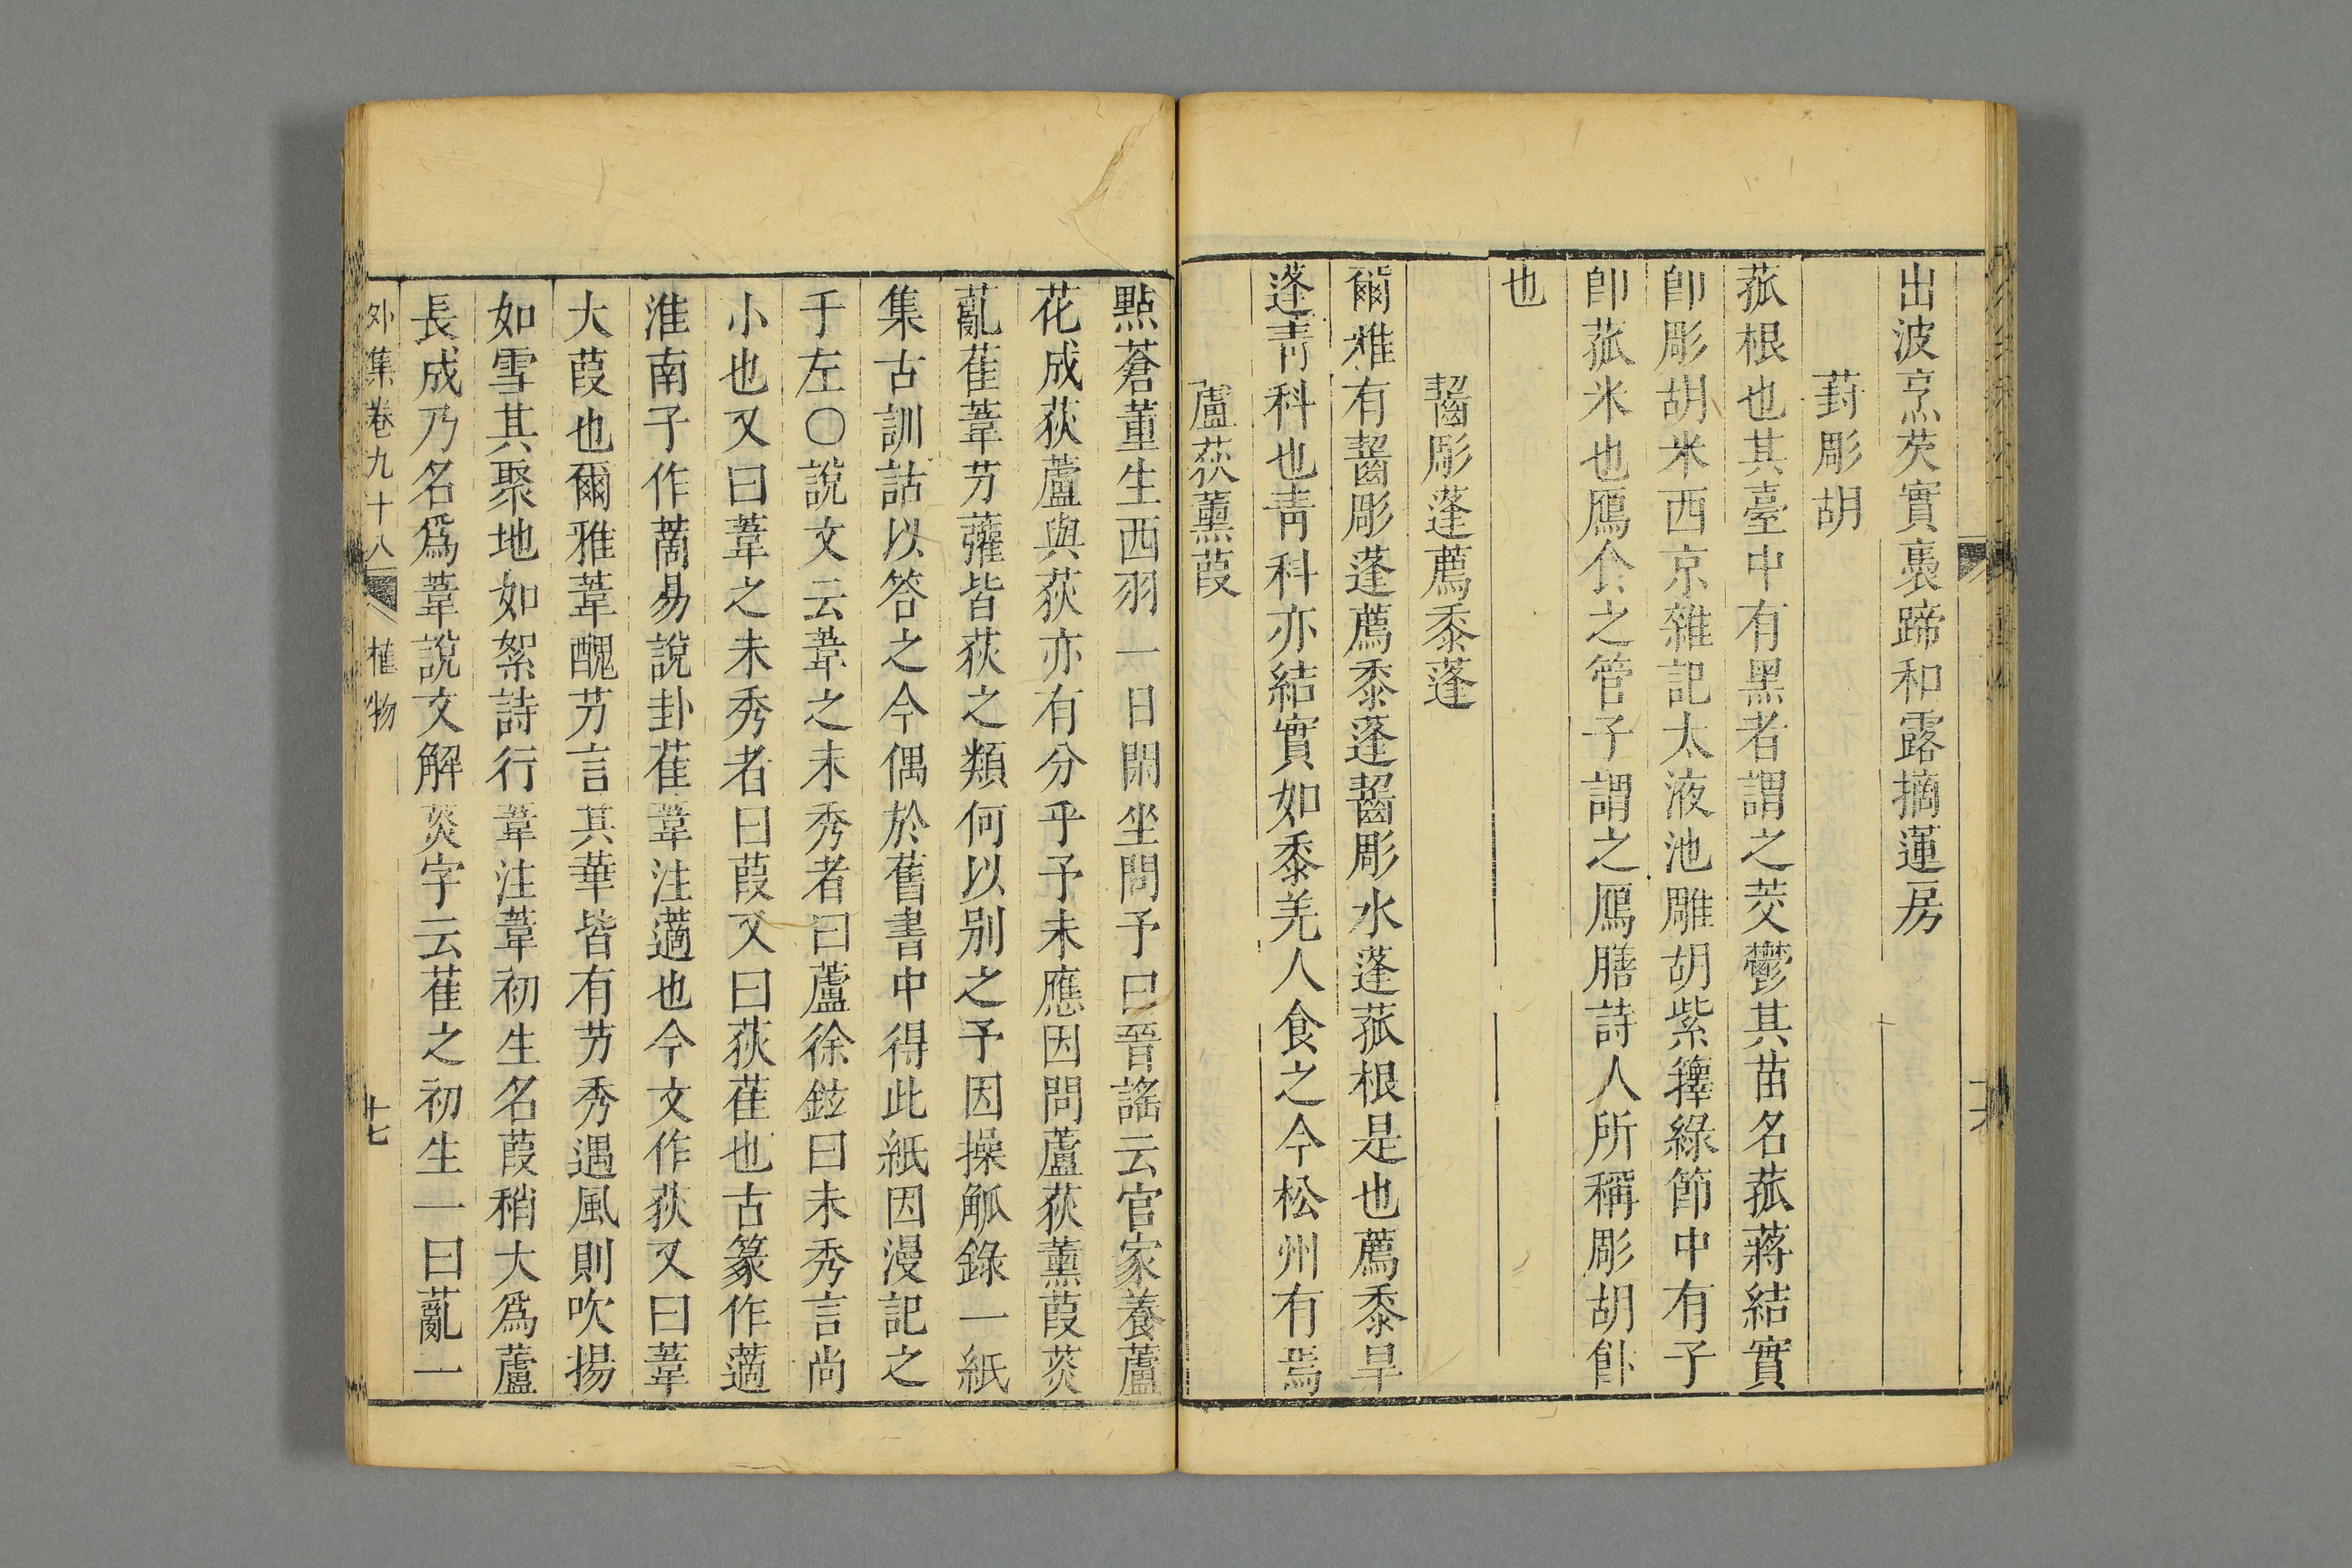 出波烹芡實裹蹄和露摘蓮房
葑彫胡
菰根也其臺中有黑者謂之茭鬱其苗名菰蔣結實
卽彫胡米西京雜記太液池雕胡紫籜綠節中有子
卽菰米也鴈食之管子謂之鴈膳詩人所稱彫胡飰
也
齧彫蓬薦黍蓬
爾雅有齧彫蓬薦黍蓬齧彫水蓬菰根是也薦黍旱
蓬靑科也靑科亦結實如黍羌人食之今松州有焉
蘆荻薰葭
點蒼董生西羽一日閑坐問予曰晉謠云官家養蘆
花成荻蘆與荻亦有分乎予未應因問蘆荻薰葭菼
薍萑葦芀虇皆荻之類何以别之予因操觚錄一紙
集古訓詁以答之今偶於舊書中得此紙因漫記之
于左○說文云葦之未秀者曰蘆徐鉉曰未秀言尚
小也又曰葦之未秀者曰葭又曰荻萑也古篆作薖
淮南子作藡易說卦萑葦注薖也今文作荻又曰葦
大葭也爾雅葦醜芀言其華皆有芀秀遇風則吹揚
如雪其聚地如絮詩行葦注葦初生名葭稍大爲蘆
長成乃名爲葦說文解菼字云萑之初生一曰薍一
外集卷九十八 植物 十七